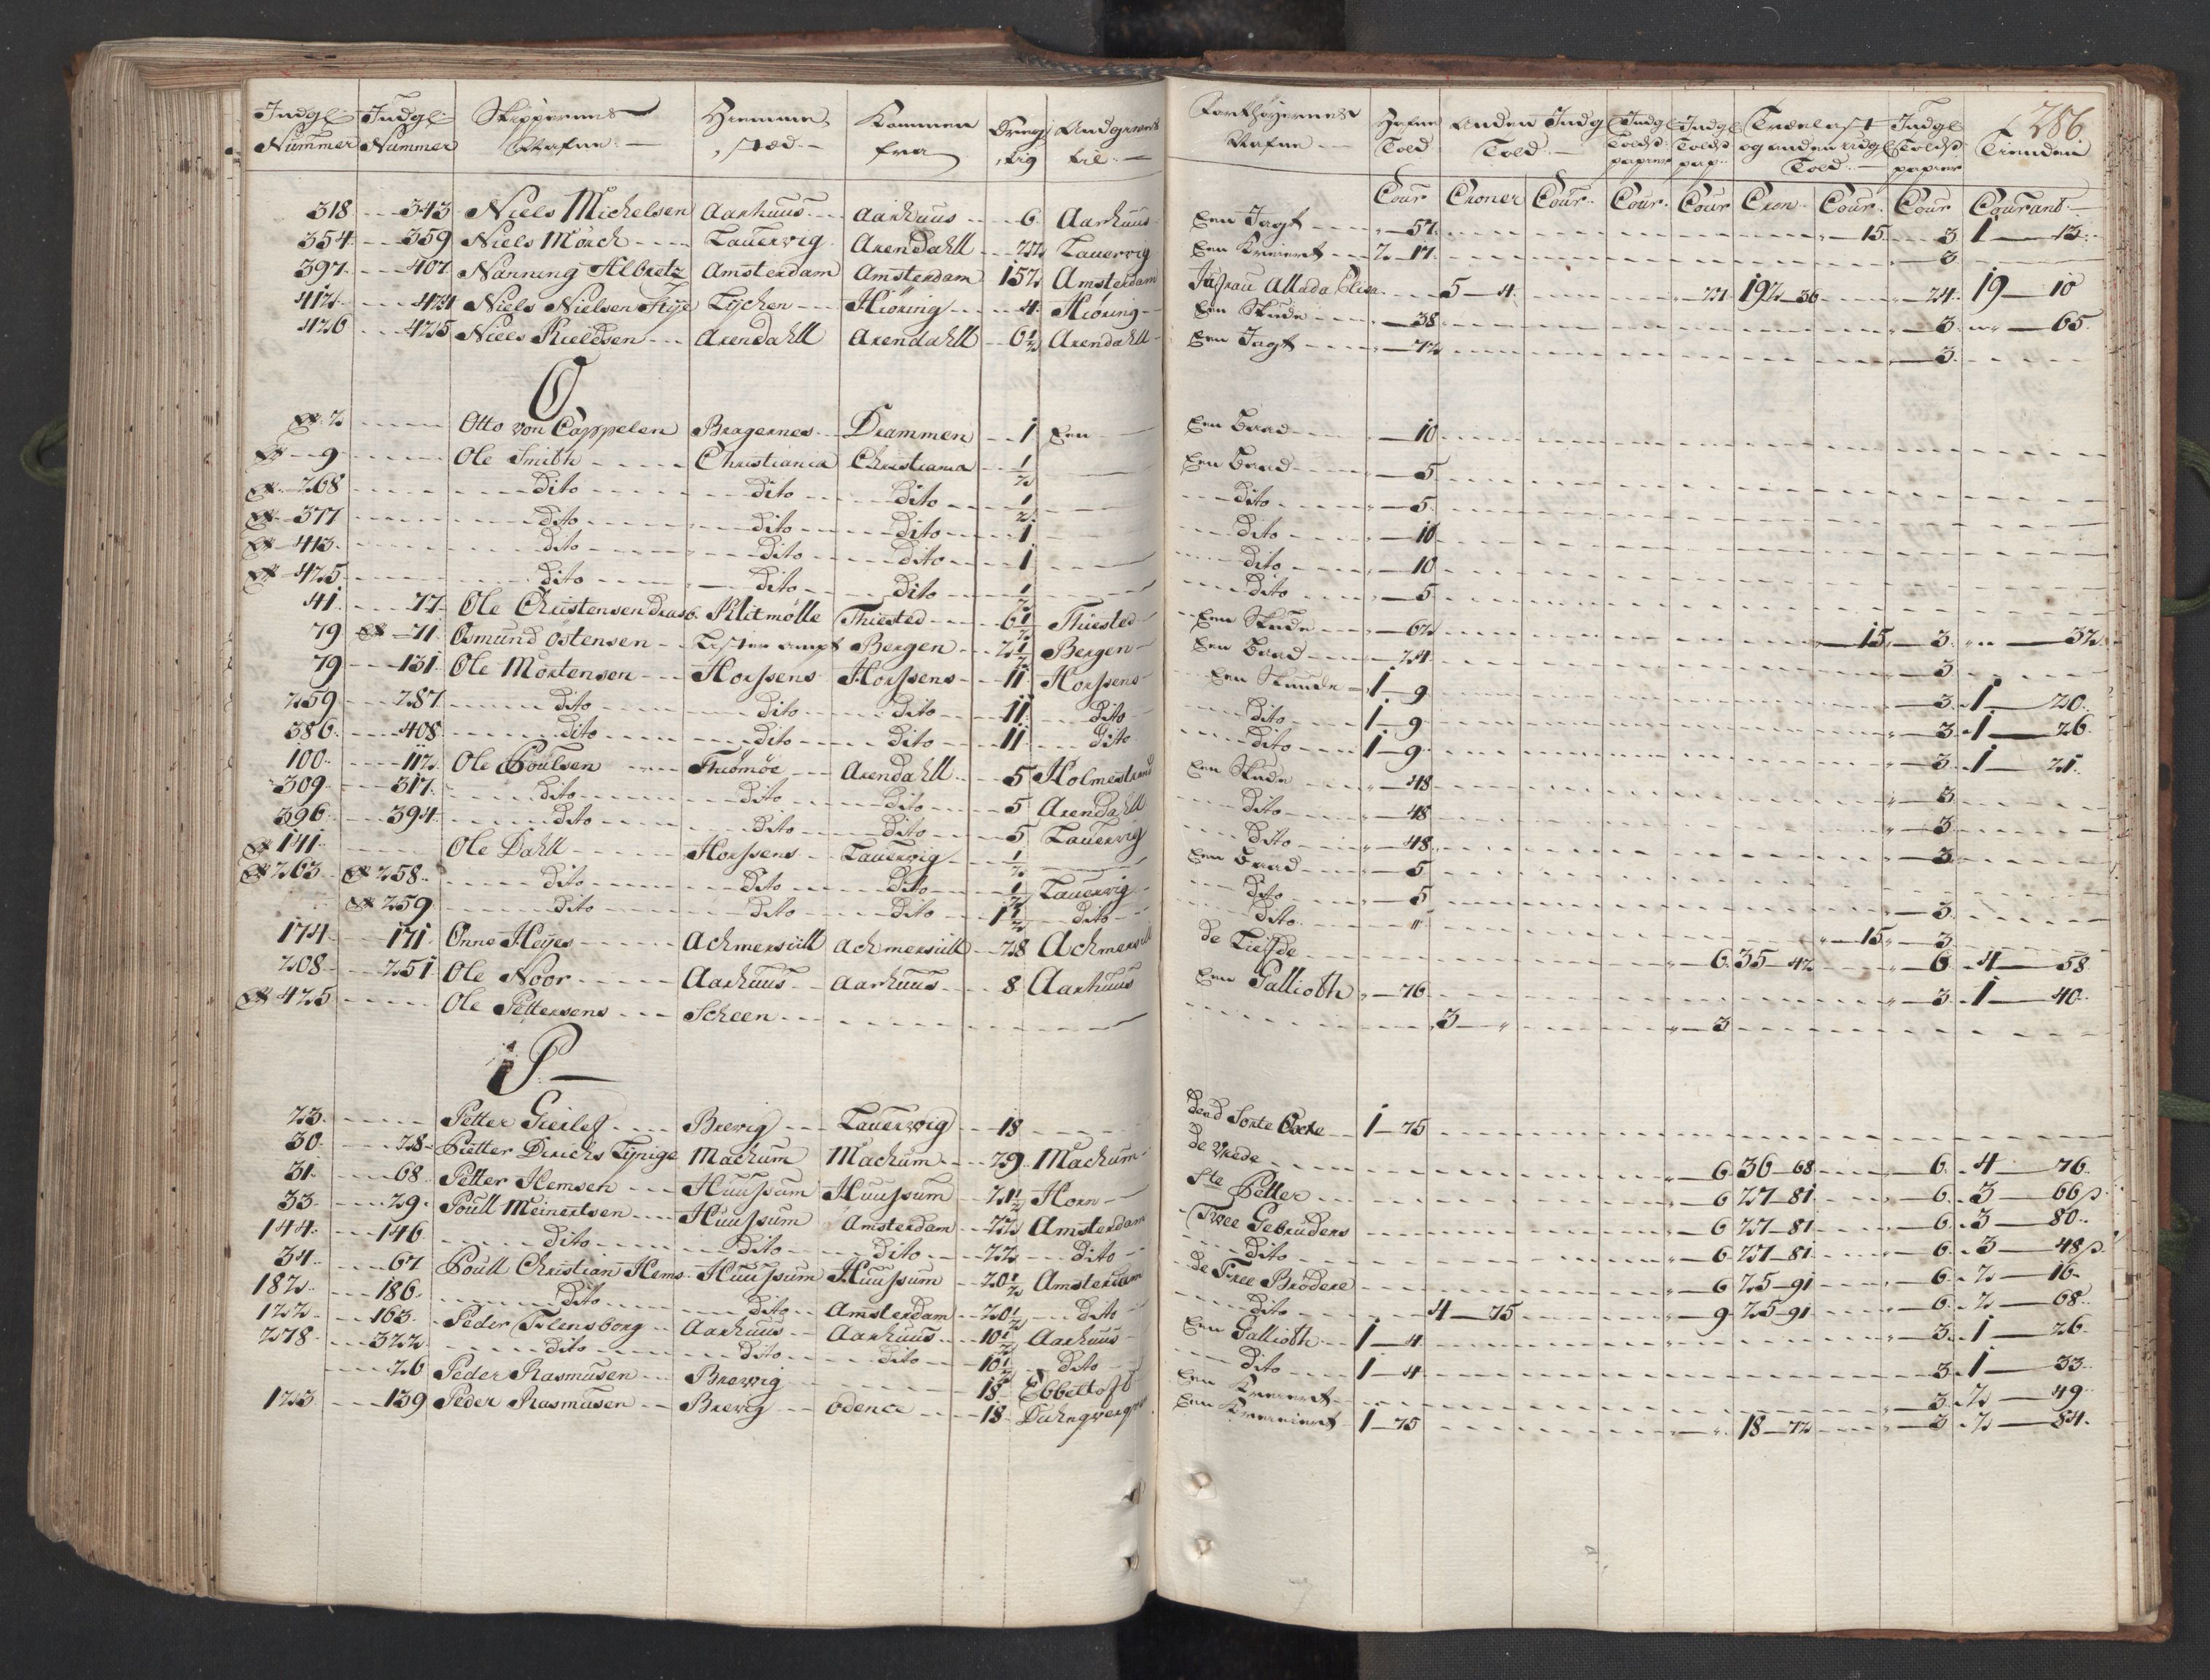 Indgl: Nummer Judgl: Nummer Skippernes Nafne Hiemme stæd Kommen fra Dreg tig Uudgaaaende til
318 343 Niels Michelsen Aarhuus Aarhuus 6 Aarhuus
354 359 Niels Mörch Lauervig Arendahll 22 Lauervig
397 407 Nanning Albretz Amsterdam Amsterdam 152 Amsterdam
412 424 Niels Nielsen Tychen Hiöring 4 Hiöring
426 425 Niels Kieldsen Arendahll Arendahll 6½ Arendahll
O
2 Otto von Cappelen Bragernes Drammen 1 Een
9 Ole Smith Christiania Christiania ½
268 dito dito dito ½
377 dito dito dito 1
413 dito dito dito 1
425 dito dito dito ½
41 77 Ole Christensen Klitmölle Thiested 6½ Thiested
79 71 Osmund Östensen Lister ampt Bergen 2½ Bergen
79 131 Ole Mortensen Horssens Horssens 11 Horssens
259 287 dito dito dito 11 dito
386 408 dito dito dito 11 dito
100 112 Ole Poulsen Thromöe Arendahll 5 Holmestrand
309 317 dito dito dito 5 Arendahll
396 394 dito dito dito 5 Lauervig
141 Ole Dahll Horssens Lauervig ½
263 258 dito dito dito ½ Lauervig
259 dito dito dito 1½ dito
174 171 Onne Heyes Achmersiill Achmersiill 28 Achmersiill
208 251 Ole Noor Aarhuus Aarhuus 8 Aarhuus
425 Ole Pettersens Scheen
P
23 Petter Gierlef Brevig Lauervig 18
30 28 Pietter Dirichs Tynige Mackum Mackum 29 Mackum
31 68 Petter Hemsen Huussum Huussum 21½ Horn
33 29 Poull Meinertsen Huussum Amsterdam 22 Amsterdam
144 146 dito dito dito 22 dito
34 67 Poull Christian Hems Huussum Huussum 20½ Amsterdam
182 186 dito dito Amsterdam 20½ dito
122 163 Peder Flensborg Aarhuus Aarhuus 10½ Aarhuus
278 322 dito dito dito 10½ dito
26 Peder Rasmusen Brevig 18 Ebbeltoft
123 139 Peder Rasmusen Brevig Odence 18
286
Fartøyernes Nafne Hafne Told Anden Indg Told Indgl Toldsd papirer Indgl Toldsd pap Trælast og anden udgl Told Indgl Toldsd papirer Tienden
Cour Croner Cour Cour Cour Cron Cour Cour Courant
Een Jagt 57 15 3 1 13
Een Kreiert 2 17 3
Jufrau Allada Elisa 5 4 21 192 36 24 19 10
Een Skude 38 3 65
Een Jagt 72 3
Een Baad 10
Een Baad 5
dito 5
dito 10
dito 10
dito 5
Een Skude 62 15 3 32
Een Baad 24 3
Een Skuude 1 9 3 1 20
dito 1 9 3 1 26
dito 1 9 3 1 21
Een Skude 48 3
dito 48 3
dito 48 3
Een Baad 5
dito 5 3
dito " 15 3
de Liefde 6 35 42 6 4 58
Een Gallioth 76 3 1 40
3 " 3
dend Sorte 1 75
de Vrede 6 36 68 6 4 76
Ste Petter 6 27 81 6 3 66
Twee Gebruders 6 27 81 6 3 80
dito 6 27 81 6 3 48
de Tree Brödere 6 25 91 6 2 16
dito 4 75 9 25 91 6 2 68
Een Gallioth 1 4 3 1 26
dito 1 4 3 1 33
Een Kreiert 3 2 49
Een Kreeiert 1 75 18 72 3 2 84